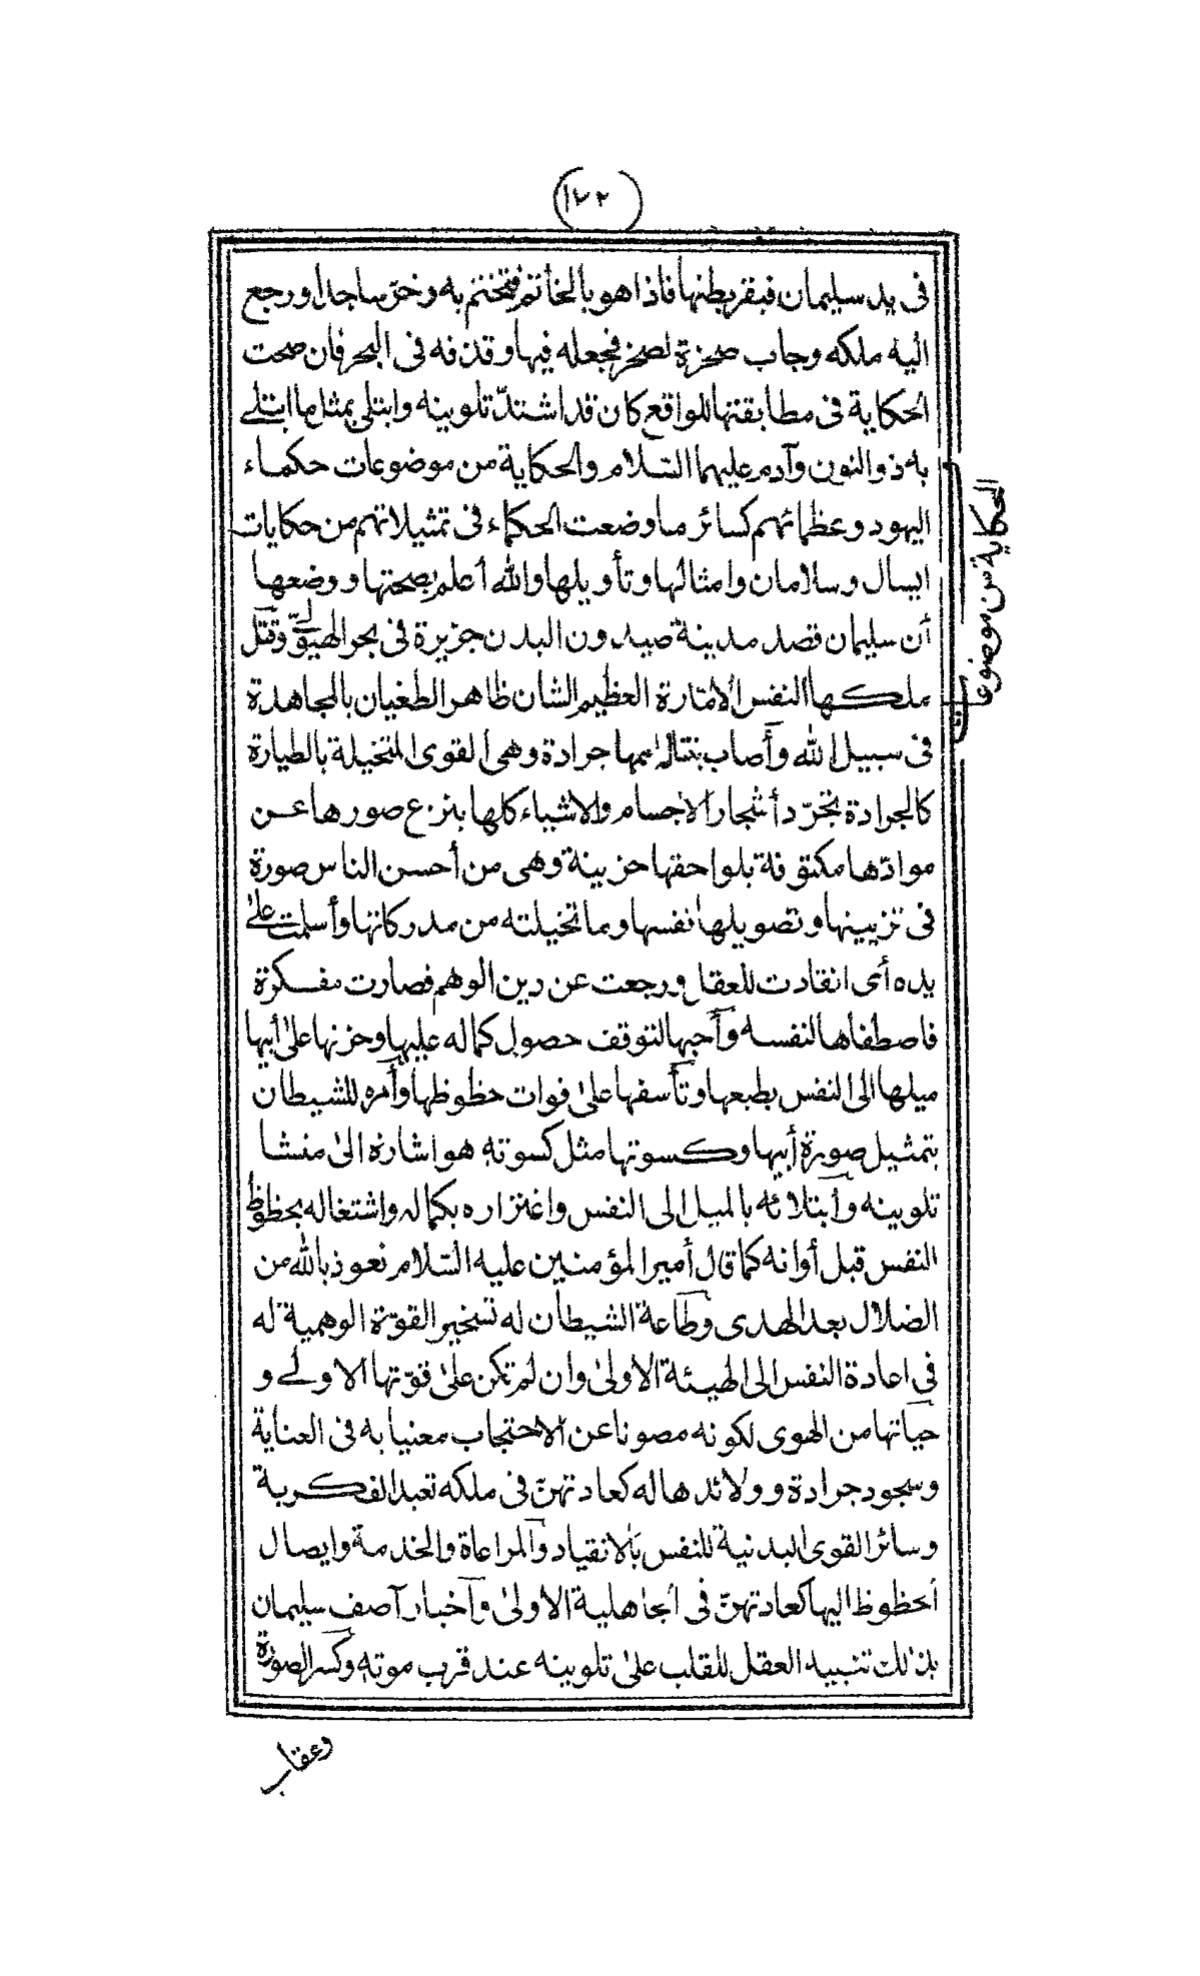 ١٧٢
فى يد سليمان فبقر بطنها فاذا هو بالخاتم فتختم به وخرّ ساجدا ورجع
اليه ملكه وجاب صخرة لصخر فجعله فيها وقذفه فى البحر فان صحت
الحكاية فى مطابقتها للواقع كان قد اشتدّ تلوينه وابتلى بمثل ما ابتلى
به ذو النون وآدم عليهما السّلام والحكاية من موضوعات حكماء
اليهود وعظمائهم كسائر ما وضعت الحكماء فى تمثيلاتهم من حكايات
ابسال وسلامان وامثالها وتأويلها والله أعلم بصحتها ووضعها
أن سليمان قصد مدينة صيدون البدن جزيرة فى بحر الهيولى وقتل
ملكها النفس الأمّارة العظيم الشان ظاهر الطغيان بالمجاهدة
فى سبيل الله وأصاب بنتا له اسمها جرادة وهى القوى المتخيلة بالطيارة
كالجرادة تجرّد أشجار الاجسام والاشياء كلها بنزع صورها عن
موادّها مكنوفة بلواحقها حزينة وهى من أحسن الناس صورة
فى تزيينها وتصويلها نفسها وما تخيلته من مدركاتها وأسلمت على
يده أى انقادت للعقل ورجعت عن دين الوهم فصارت مفكرة
فاصطفاها لنفسه وأحبها لتوقف حصول كماله عليها وحزنها على أبيها
ميلها الى النفس بطبعها وتأسفها على فوات حظوظها وأمره للشيطان
بتمثيل صورة أبيها وكسوتها مثل كسوته هو اشارة الى منشا
تلوينه وابتلائه بالميل الى النفس واغتراره بكماله واشتغاله بحظوظ
النفس قبل أوانه كما قال أمير المؤمنين عليه السّلام نعوذ بالله من
الضلال بعد الهدى وطاعة الشيطان له تسخير القوّة الوهمية له
فى اعادة النفس الى الهيئة الأولى وان لم تكن على قوّتها الاولى و
حياتها من الهوى لكونه مصونا عن الاحتجاب معنيا به فى العناية
وسجود جرادة وولائدها له كعادتهنّ فى ملكه تعبد الفكرية
وسائر القوى البدنية للنفس بالانقياد والمراعاة والخدمة وايصال
الحظوظ اليها كعادتهنّ فى الجاهلية الأولى وأخبار آصف سليمان
بذلك تنبيه العقل للقلب على تلوينه عند قرب موته وكسر الصورة
الحكاية من موضوعات
وعقاب